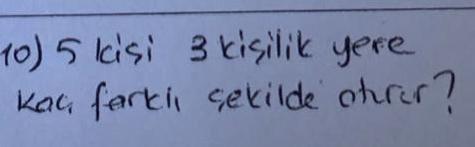 10) 5 kişi 3 kişilik yere
kaç farklı şekilde oturur?